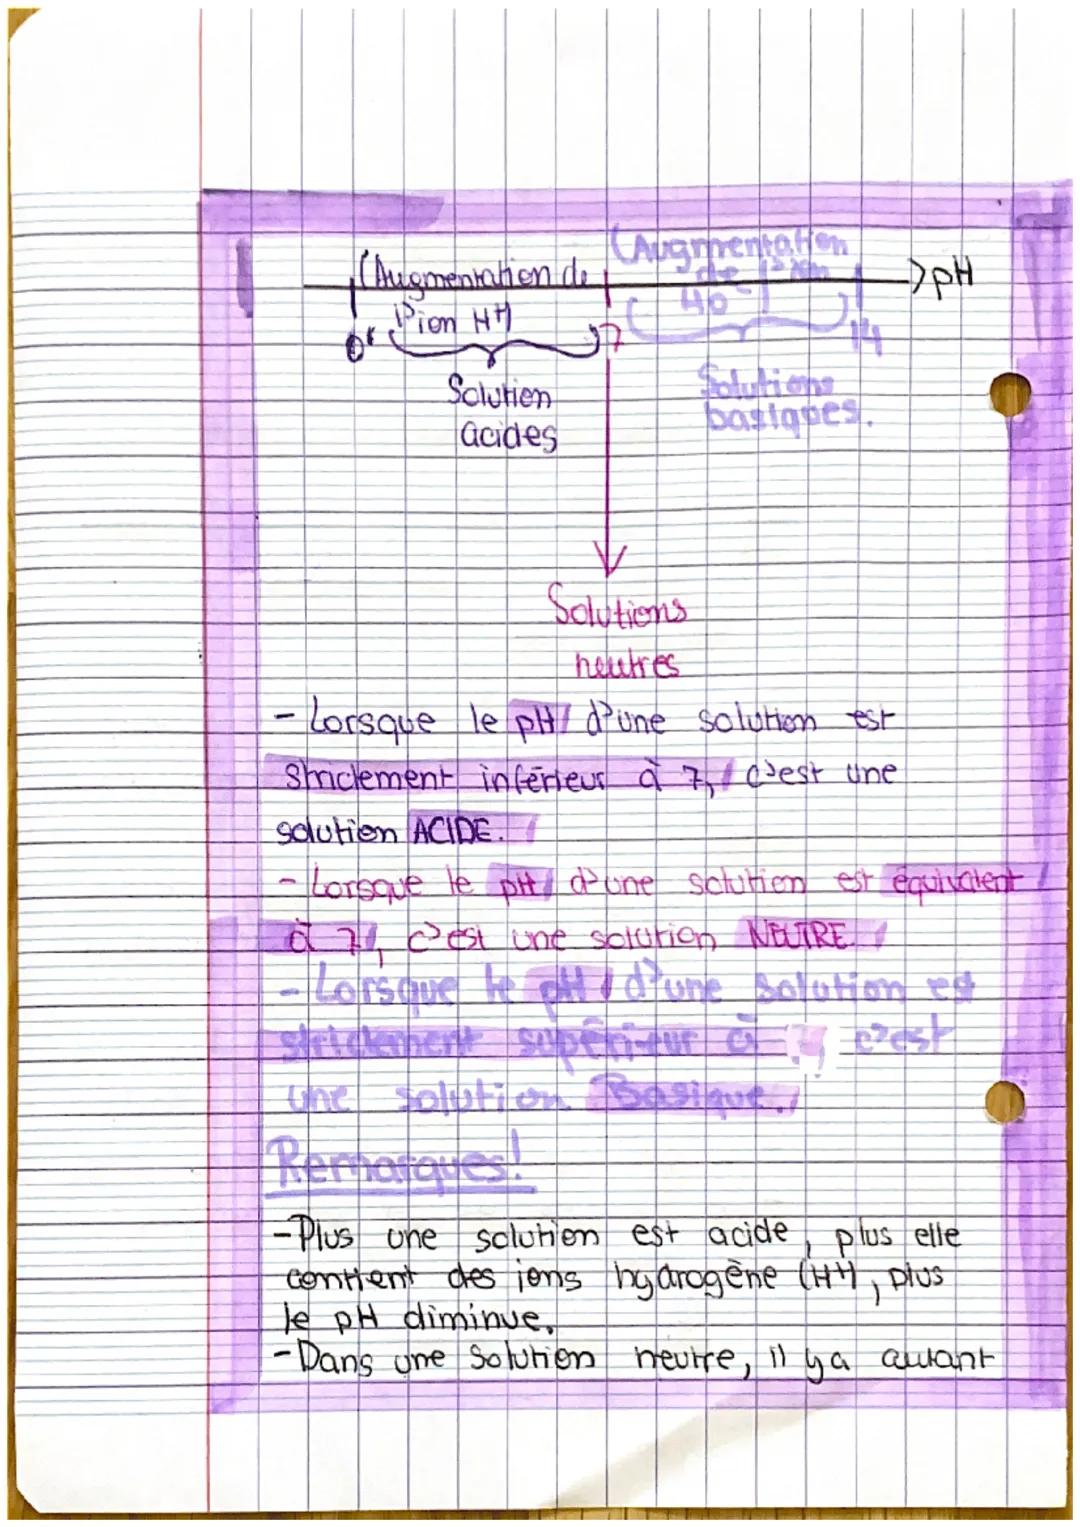 (Augmentation de
l'ion H+)
(Augmentation
de l'ion
HO-)
> pH
0
7
14
Solution
acides
Solutions
basiques.
Solutions
neutres
- Lorsque le pH d'une solution est
strictement inférieur à 7, c'est une
solution ACIDE.
- Lorsque le pH d'une solution est équivalent
à 7, c'est une solution NEUTRE.
- Lorsque le pH d'une solution est
strictement supérieur à 7, c'est
une solution Basique.
Remarques!
- Plus une solution est acide, plus elle
contient des ions hydrogène (H+), plus
le pH diminue.
- Dans une solution neutre, il y a autant